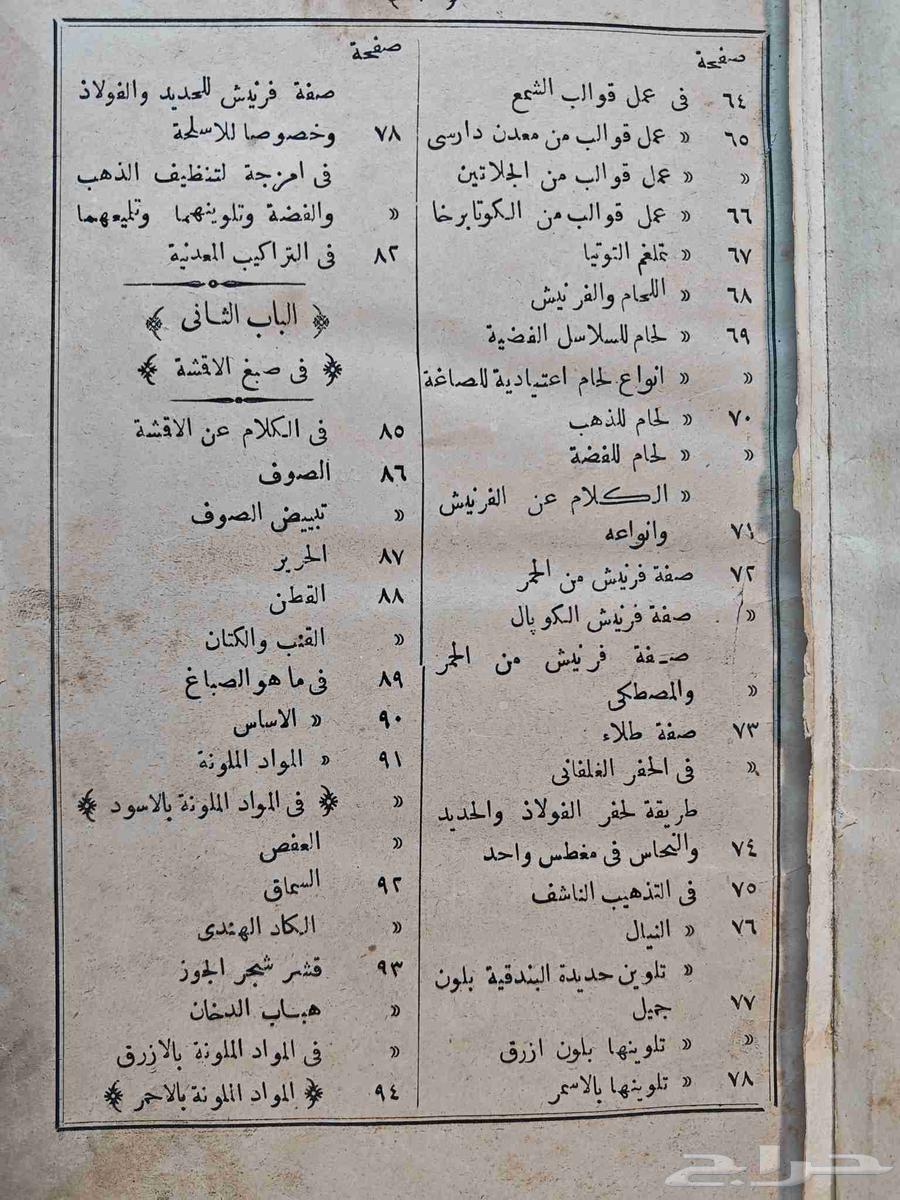 صفحة
٦٤ فى عمل قوالب الشمع
٦٥ » عمل قوالب من معدن دارسى
» » عمل قوالب من الجلاتين
٦٦ » عمل قوالب من الكوتابرخا
٦٧ » تملغم التوتيا
٦٨ » اللحام والفرنيش
٦٩ » لحام للسلاسل الفضية
» » انواع لحام اعتيادية للصاغة
٧٠ » لحام للذهب
» » لحام للفضة
» الكلام عن الفرنيش
٧١ وانواعه
٧٢ صفة فرنيش من الحمر
» صفة فرنيش الكوپال
صفة فرنيش من الحمر
» والمصطكى
٧٣ صفة طلاء
» فى الحفر الغلفانى
طريقة لحفر الفولاذ والحديد
٧٤ والنحاس فى مغطس واحد
٧٥ فى التذهيب الناشف
٧٦ » النيال
» تلوين حديدة البندقية بلون
٧٧ جميل
» » تلوينها بلون ازرق
٧٨ » تلوينها بالاسمر
صفحة
صفة فرنيش للحديد والفولاذ
٧٨ وخصوصا للاسلحة
فى امزجة لتنظيف الذهب
» والفضة وتلوينهما وتلميعهما
٨٢ فى التراكيب المعدنية
﴿ الباب الثانى ﴾
﴿ فى صبغ الاقشة ﴾
٨٥ فى الكلام عن الاقشة
٨٦ الصوف
» تبييض الصوف
٨٧ الحرير
٨٨ القطن
» القنب والكتان
٨٩ فى ما هو الصباغ
٩٠ » الاساس
٩١ » المواد الملونة
» ﴿ فى المواد الملونة بالاسود ﴾
» العفص
٩٢ السماق
» الكاد الهندى
٩٣ قشر شجر الجوز
» هباب الدخان
» فى المواد الملونة بالازرق
٩٤ ﴿ المواد الملونة بالاحمر ﴾
حراج